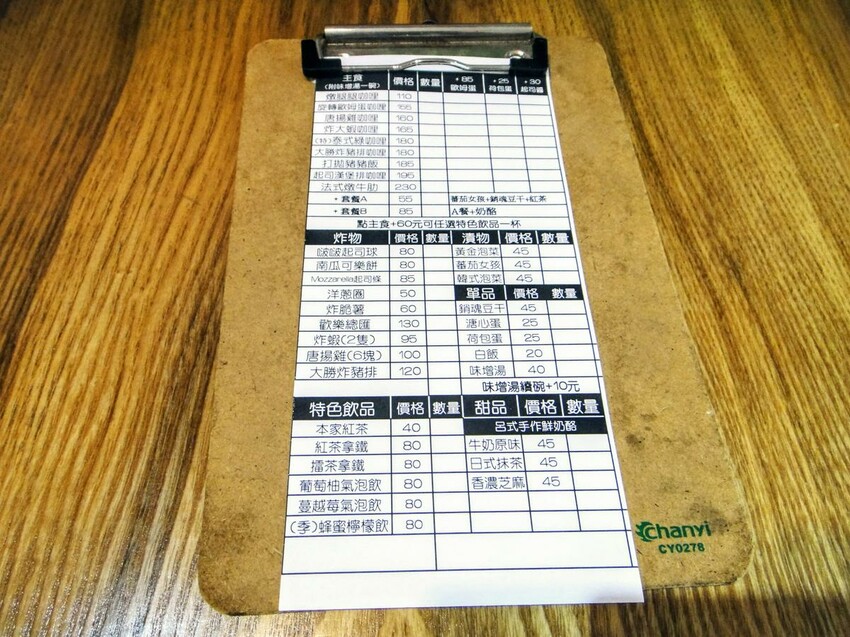 主食 價格 數量 +85 +25 +30
(附味增湯一碗) 歐姆蛋 荷包蛋 起司醬
燉腿腿咖哩 110
旋轉歐姆蛋咖哩 155
唐揚雞咖哩 160
炸大蝦咖哩 165
(特)泰式綠咖哩 180
大勝炸豬排咖哩 180
打拋豬豬飯 185
起司漢堡排咖哩 195
法式燉牛肋 230
+套餐A 55 蕃茄女孩+銷魂豆干+紅茶
+套餐B 85 A餐+奶酪
點主食+60元可任選特色飲品一杯
炸物 價格 數量 漬物 價格 數量
啵啵起司球 80 黃金泡菜 45
南瓜可樂餅 80 蕃茄女孩 45
Mozzarella起司條 85 韓式泡菜 45
洋蔥圈 50 單品 價格 數量
炸脆薯 60 銷魂豆干 45
歡樂總匯 130 溏心蛋 25
炸蝦(2隻) 95 荷包蛋 25
唐揚雞(6塊) 100 白飯 20
大勝炸豬排 120 味增湯 40
味增湯續碗+10元
特色飲品 價格 數量 甜品 價格 數量
本家紅茶 40 呂式手作鮮奶酪
紅茶拿鐵 80 牛奶原味 45
擂茶拿鐵 80 日式抹茶 45
葡萄柚氣泡飲 80 香濃芝麻 45
蔓越莓氣泡飲 80
(季)蜂蜜檸檬飲 80
chanyi
CY0278